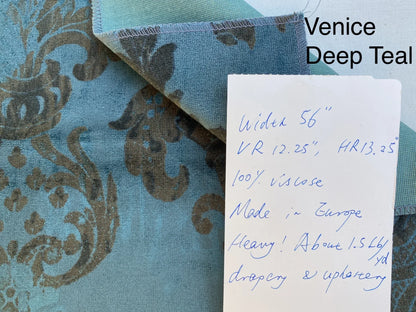 Venice
Deep Teal
Width 56"
VR 12.25", HR 13.25"
100% viscose
Made in Europe
Heavy! About 1.5 Lb/yd
drapery & upholstery